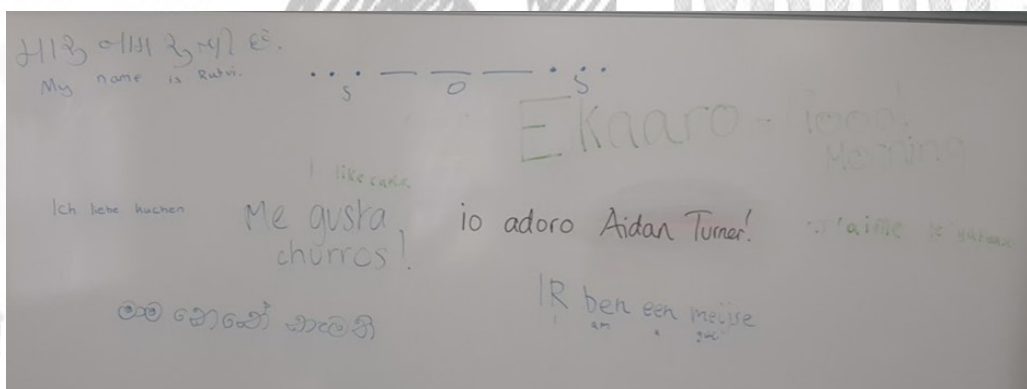 મારુ નામ રુત્વી છે.
My name is Rutvi.
... — — — ...
S O S
E Kaaro - Good!
Morning
I like cake
Ich liebe kuchen
Me gusta
churros!
io adoro Aidan Turner!
J'aime le gateau
මම
IR ben een meijse
I am a girl